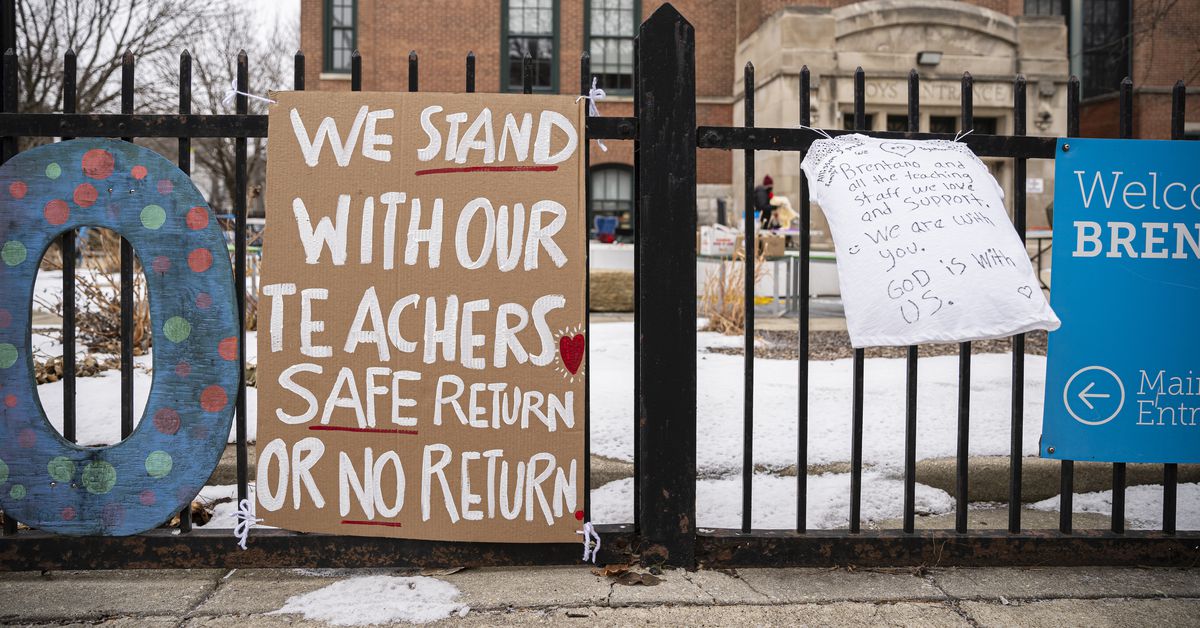 WE STAND
WITH OUR
TEACHERS
SAFE RETURN
OR NO RETURN
Brentano and
all the teaching
staff we love
and support.
We are with
you.
GOD is with
US.
OYS ENTRANCE
Welco
BREN
Mai
Entr